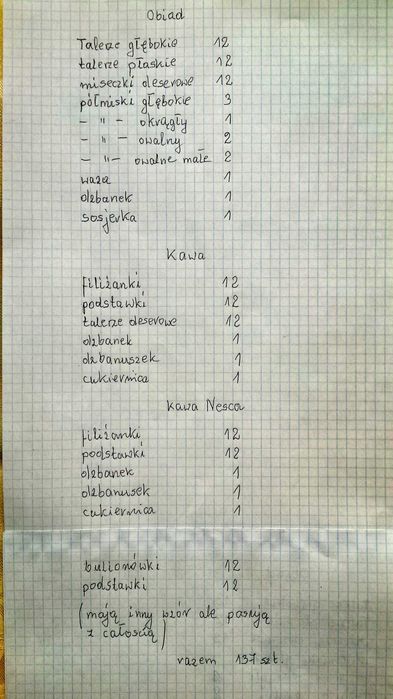 Obiad
Talerze głębokie 12
talerze płaskie 12
miseczki deserowe 12
półmiski głębokie 3
- " - okrągły 1
- " - owalny 2
- " - owalne małe 2
waza 1
dzbanek 1
sosjerka 1
Kawa
filiżanki 12
podstawki 12
talerze deserowe 12
dzbanek 1
dzbanuszek 1
cukiernica 1
Kawa Nesca
filiżanki 12
podstawki 12
dzbanek 1
dzbanusek 1
cukiernica 1
bulionówki 12
podstawki 12
(mają inny wzór ale pasują
z całością)
razem 137 szt.